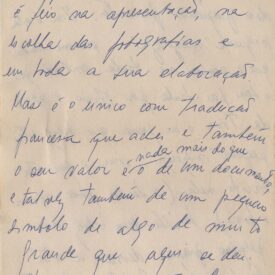 é feio na apresentação, na
escolha das fotografias e
em toda a sua elaboração
Mas é o unico com tradução
francesa que achei e também
nada mais do que
o seu valor é o de um documento,
e talvez também de um pequeno
símbolo de algo de muito
grande que aqui se deu.